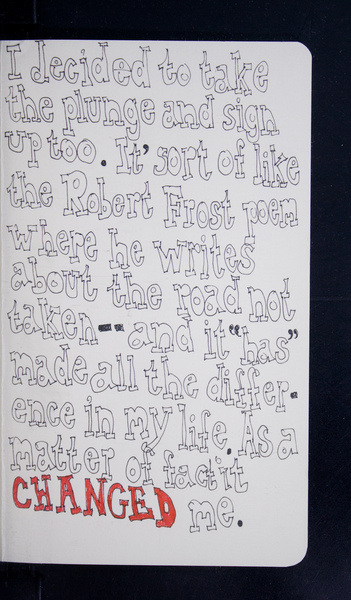 I decided to take
the plunge and sign
up too. It' sort of like
the Robert Frost poem
where he writes
about the road not
taken-- and it "has"
made all the differ-
ence in my life. As a
matter of fact it
CHANGED me.